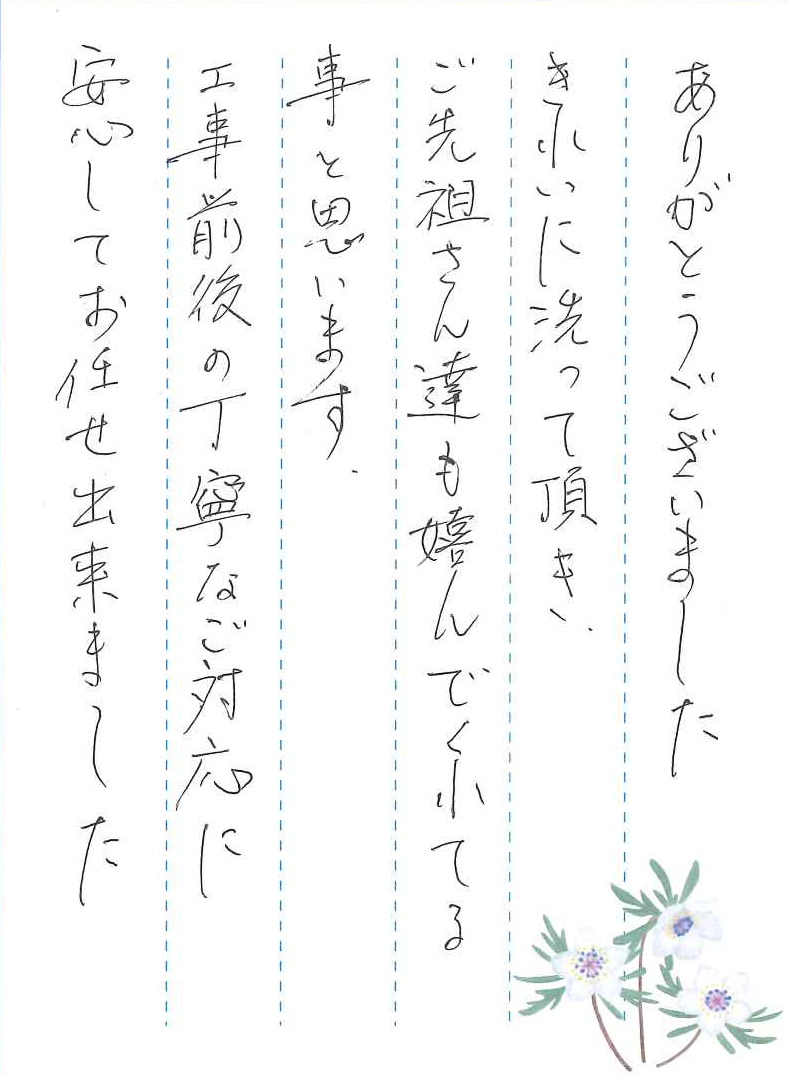 ありがとうございました
きれいに洗って頂き、
ご先祖さん達も嬉んでくれてる
事と思います.
工事前後の丁寧なご対応に
安心してお任せ出来ました